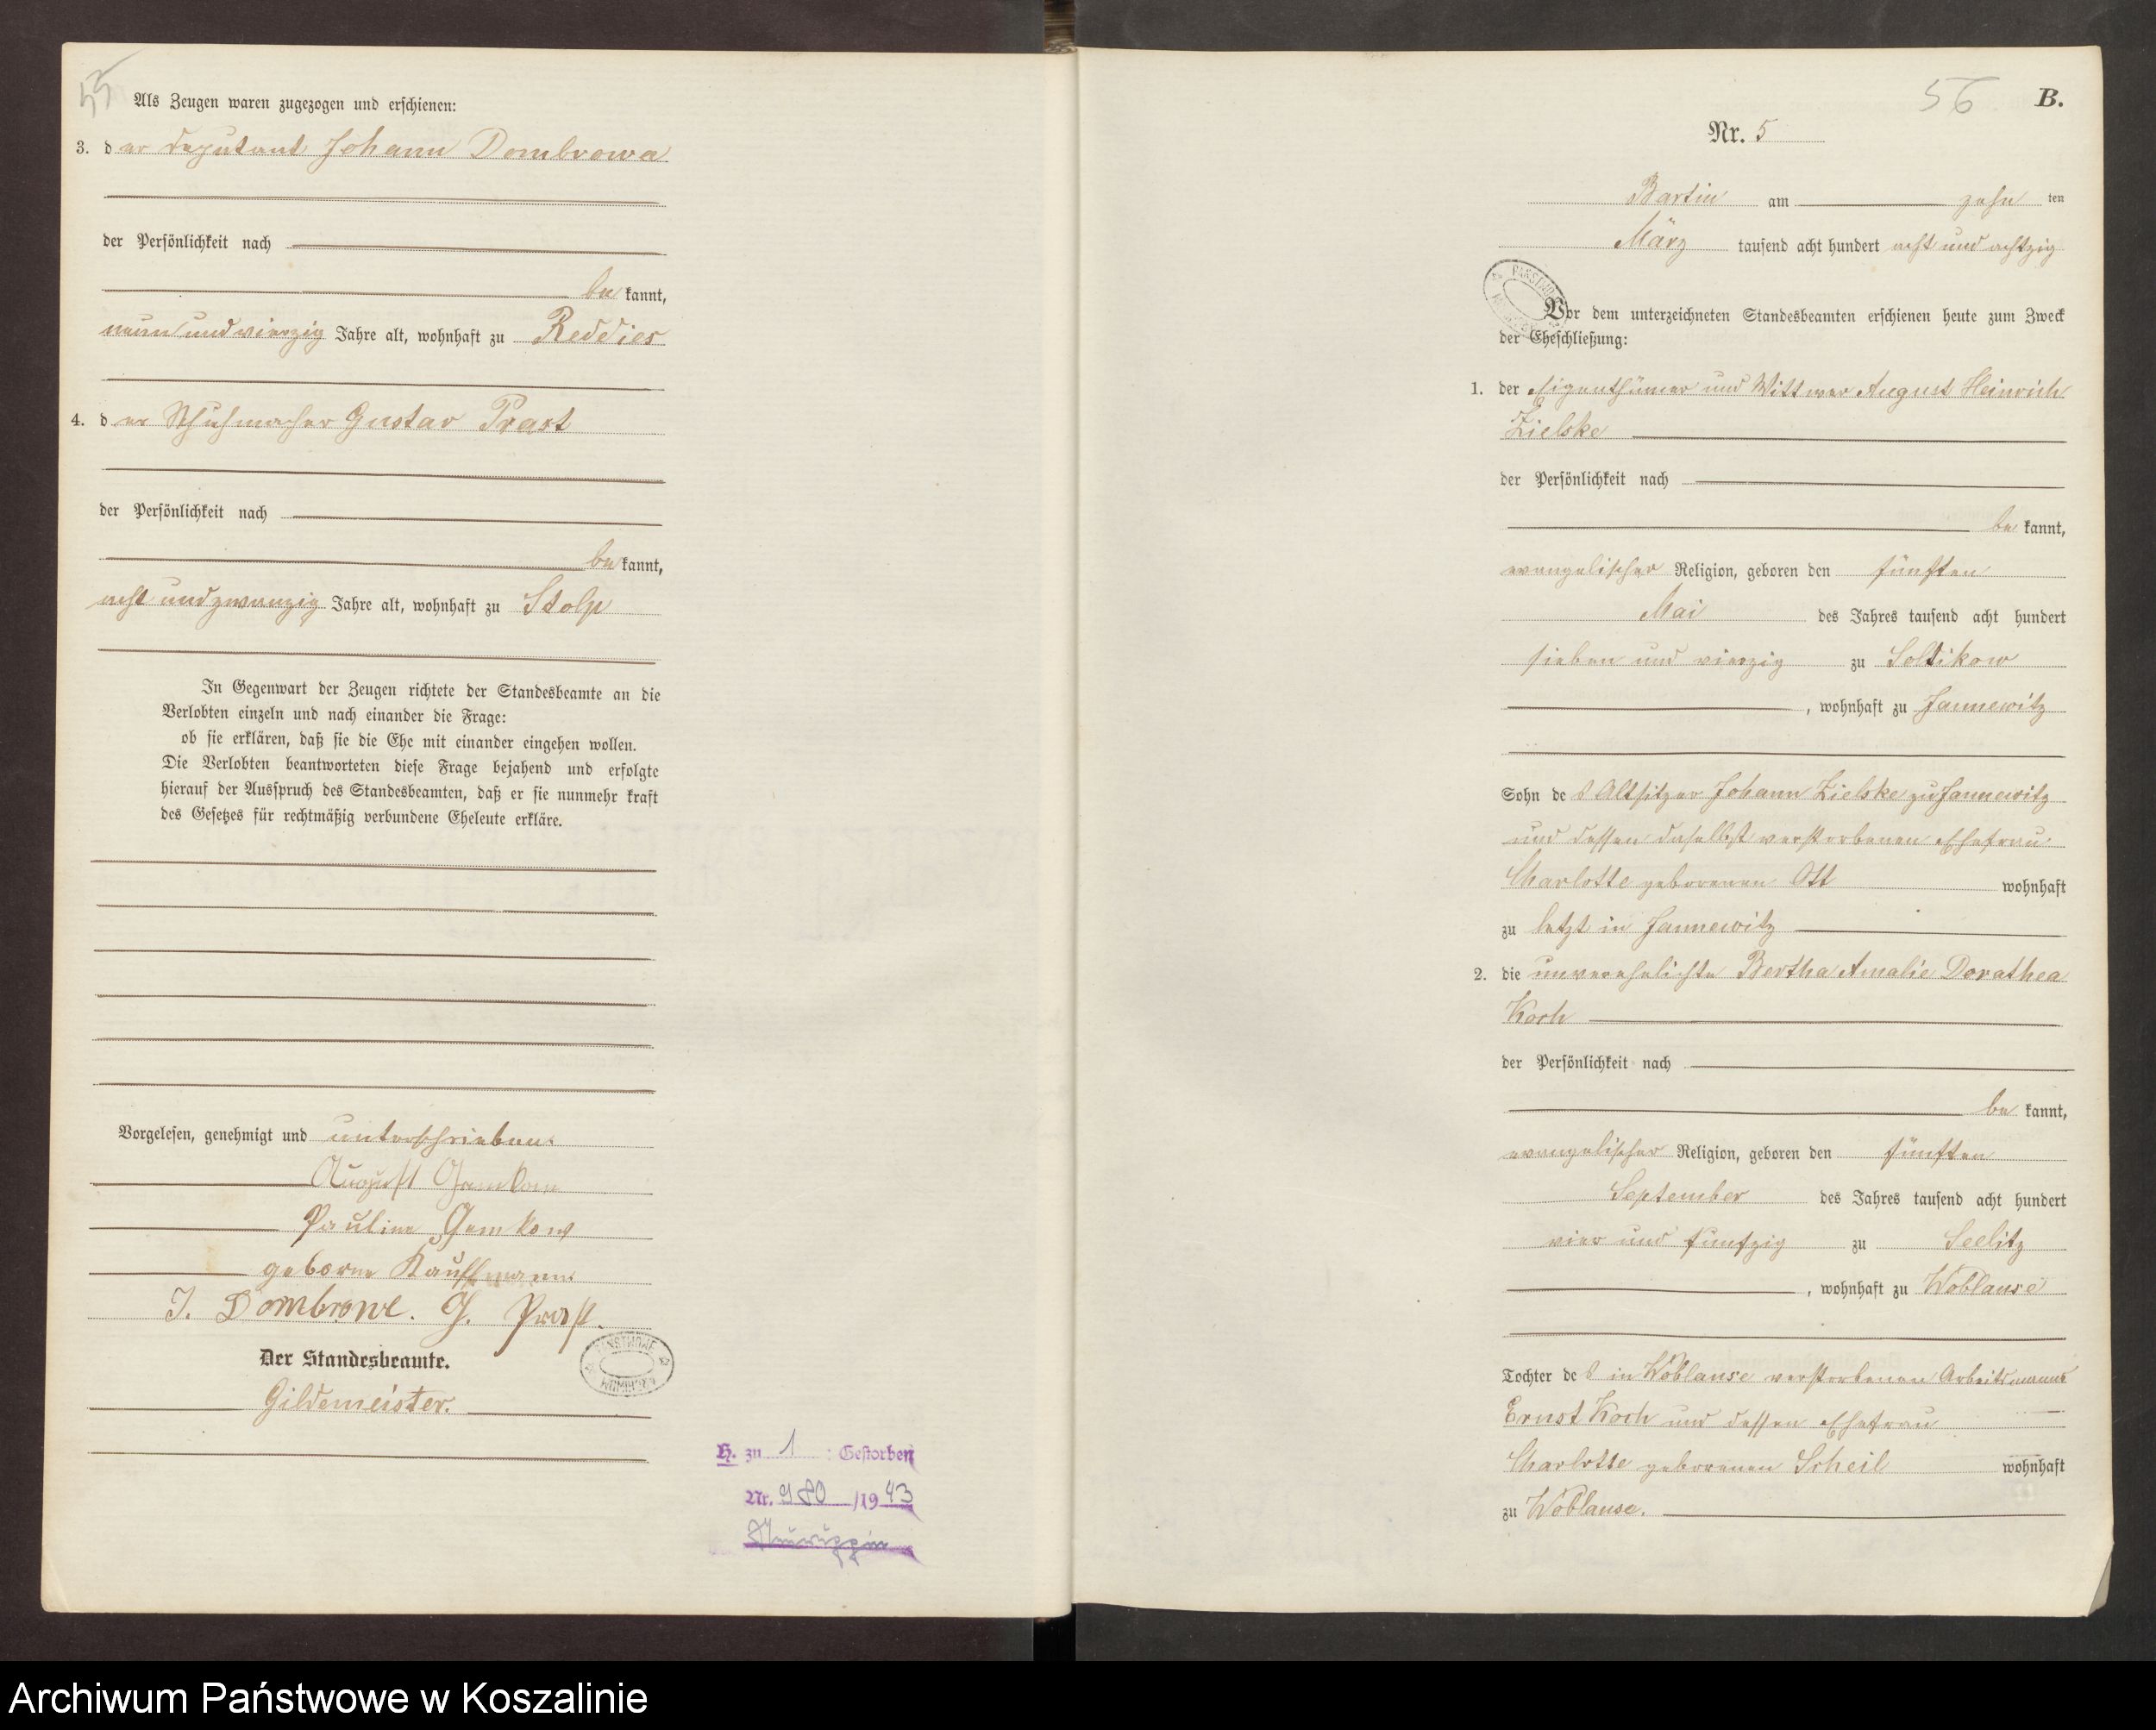 55
Als Zeugen waren zugezogen und erschienen:
3. der Deputant Johann Dombrowa
der Persönlichkeit nach
be kannt,
neun und vierzig Jahre alt, wohnhaft zu Reddies
4. der Schuhmacher Gustav Prast
der Persönlichkeit nach
be kannt,
acht und zwanzig Jahre alt, wohnhaft zu Stolp
In Gegenwart der Zeugen richtete der Standesbeamte an die
Verlobten einzeln und nach einander die Frage:
ob sie erklären, daß sie die Ehe mit einander eingehen wollen.
Die Verlobten beantworteten diese Frage bejahend und erfolgte
hierauf der Ausspruch des Standesbeamten, daß er sie nunmehr kraft
des Gesetzes für rechtmäßig verbundene Eheleute erkläre.
Vorgelesen, genehmigt und unterschrieben.
August Gemkow
Pauline Gemkow
geborne Kauffmann
J. Dombrowe. G. Prast.
Der Standesbeamte.
Gildemeister.
H. zu 1 : Gestorben
Nr. 980 /19 43
56 B.
Nr. 5
Bartin am zehn ten
März tausend acht hundert acht und achtzig
Vor dem unterzeichneten Standesbeamten erschienen heute zum Zweck
der Eheschließung:
1. der Eigenthümer und Wittwer August Heinrich
Zielske
der Persönlichkeit nach
be kannt,
evangelischer Religion, geboren den fünften
Mai des Jahres tausend acht hundert
sieben und vierzig zu Soltikow
, wohnhaft zu Jannewitz
Sohn des Altsitzer Johann Zielske zu Jannewitz
und dessen daselbst verstorbenen Ehefrau
Charlotte geborenen Ott wohnhaft
zu letzt in Jannewitz
2. die unverehelichte Bertha Amalie Dorathea
Koch
der Persönlichkeit nach
be kannt,
evangelischer Religion, geboren den fünften
September des Jahres tausend acht hundert
vier und funfzig zu Seelitz
, wohnhaft zu Woblanse
Tochter des in Woblanse verstorbenen Arbeitsmanns
Ernst Koch und dessen Ehefrau
Charlotte geborenen Scheil wohnhaft
zu Woblanse.
Archiwum Państwowe w Koszalinie